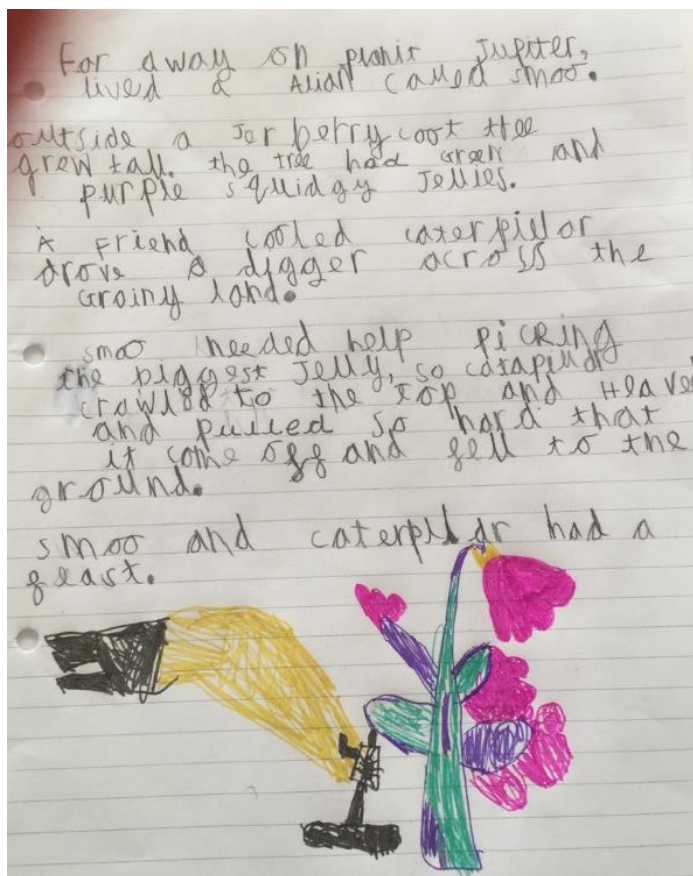 Far away on planit Jupiter,
lived a Alian called smoo.
outside a Jer berry coot tree
grew tall. the tree had Green and
purple squidgy Jellies.
A Friend cooled caterpillor
drove a digger across the
Grainy land.
smoo needed help picking
the biggest Jelly, so catapillar
crawled to the top and Heave
and pulled so hard that
it come off and fell to the
ground.
smoo and caterpillar had a
feast.